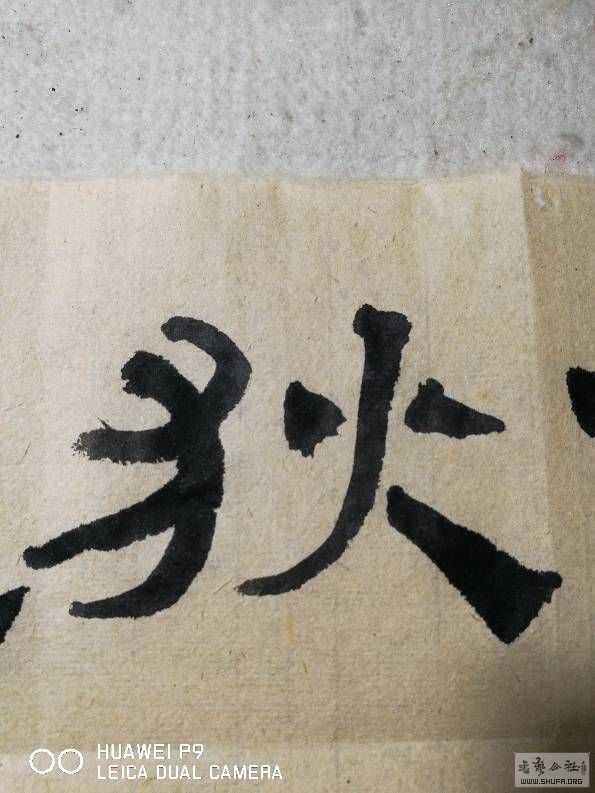 狄
HUAWEI P9
LEICA DUAL CAMERA
书法公社
WWW.SHUFA.ORG